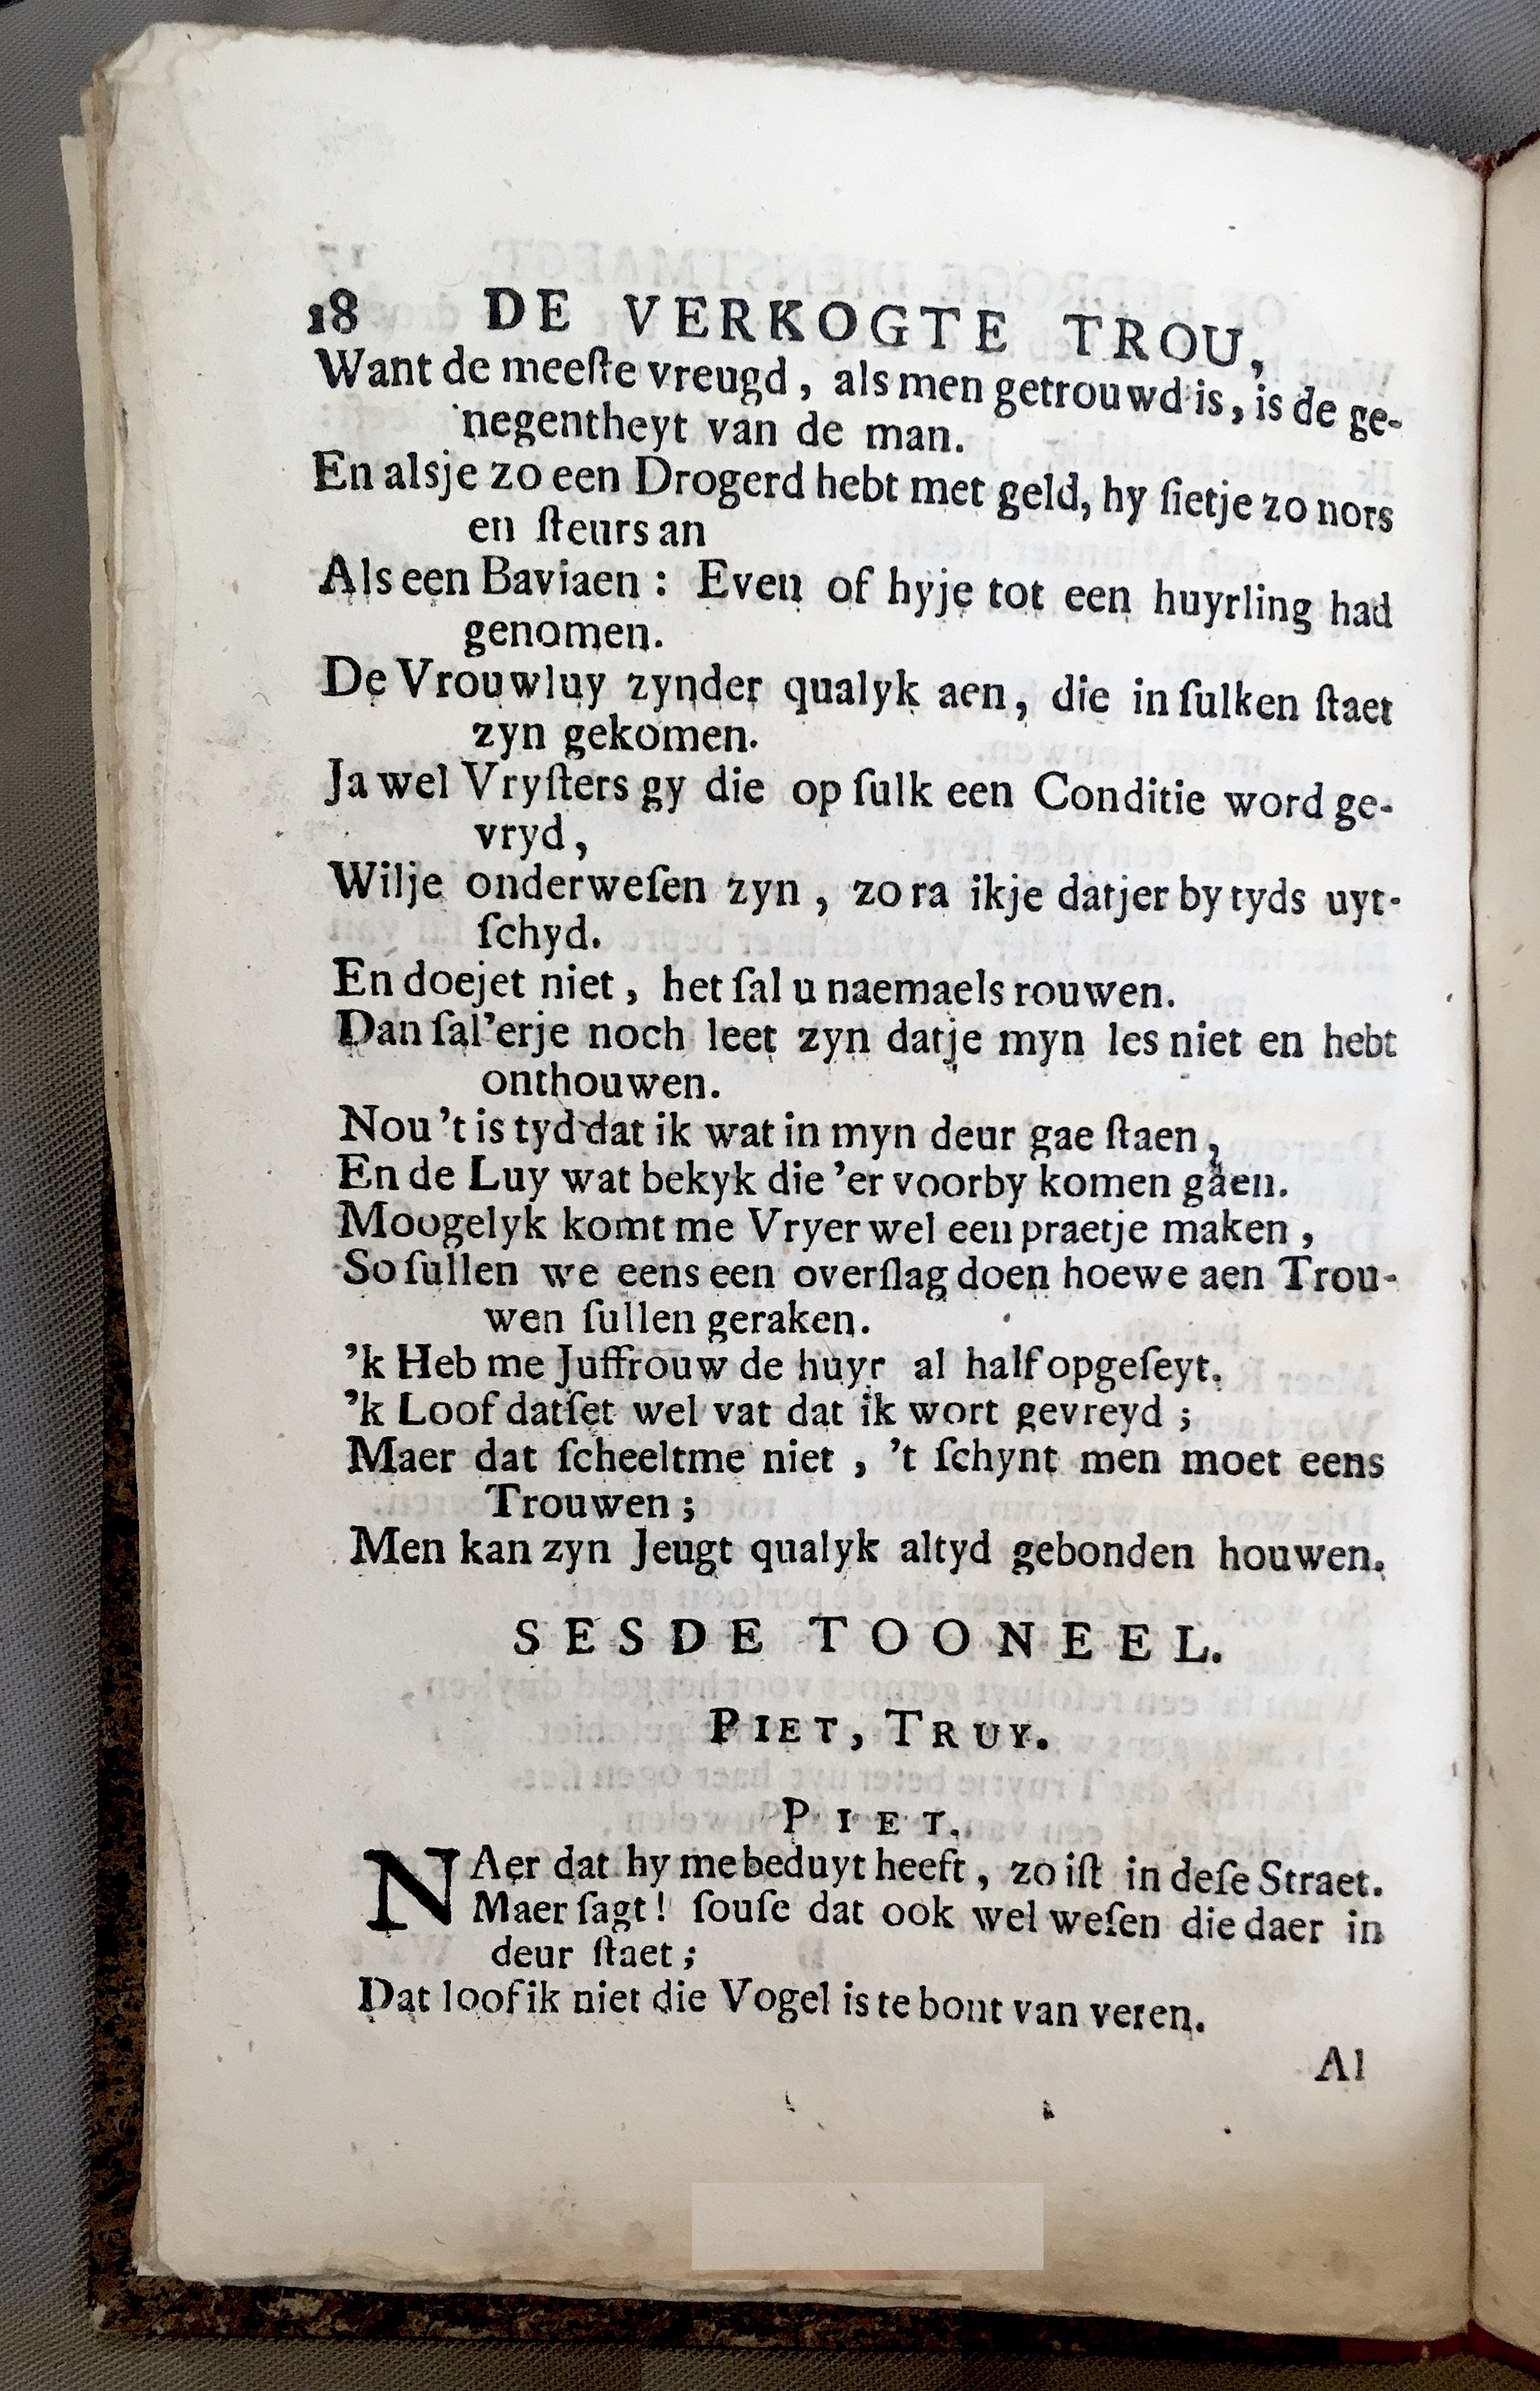 18 DE VERKOGTE TROU,
Want de meeſte vreugd, als men getrouwd is, is de ge-
negentheyt van de man.
En alsje zo een Drogerd hebt met geld, hy ſietje zo nors
en ſteurs an
Als een Baviaen: Even of hyje tot een huyrling had
genomen.
De Vrouwluy zynder qualyk aen, die in ſulken ſtaet
zyn gekomen.
Ja wel Vryſters gy die op ſulk een Conditie word ge-
vryd,
Wilje onderweſen zyn, zo ra ikje datjer by tyds uyt-
ſchyd.
En doejet niet, het ſal u naemaels rouwen.
Dan ſal'erje noch leet zyn datje myn les niet en hebt
onthouwen.
Nou 't is tyd dat ik wat in myn deur gae ſtaen,
En de Luy wat bekyk die 'er voorby komen gaen.
Moogelyk komt me Vryer wel een praetje maken,
So ſullen we eens een overſlag doen hoewe aen Trou-
wen ſullen geraken.
'k Heb me Juffrouw de huyr al half opgeſeyt.
'k Loof datſet wel vat dat ik wort gevreyd;
Maer dat ſcheeltme niet, 't ſchynt men moet eens
Trouwen;
Men kan zyn Jeugt qualyk altyd gebonden houwen.
SESDE TOONEEL.
PIET, TRUY.
PIET.
NAer dat hy me beduyt heeft, zo iſt in deſe Straet.
Maer ſagt! ſouſe dat ook wel weſen die daer in
deur ſtaet;
Dat loof ik niet die Vogel is te bont van veren.
Al